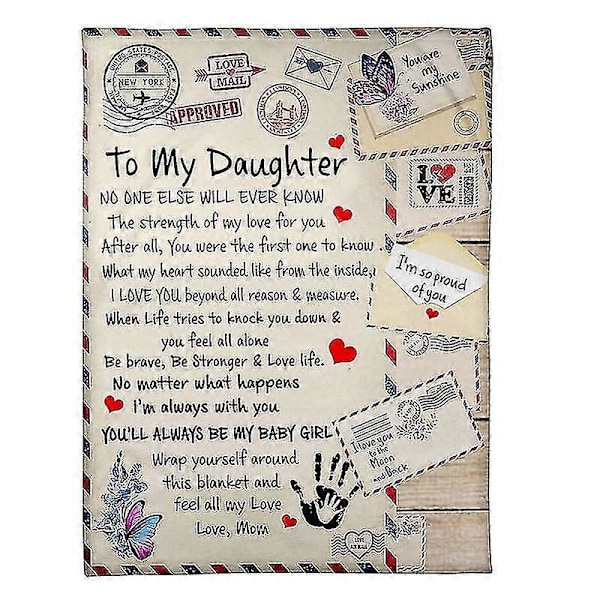 UNITED STATES POSTAGE
NEW YORK
LOVE
MAIL
APPROVED
LONDON
LONDON
You are
my
Sunshine
To My Daughter
LOVE
NO ONE ELSE WILL EVER KNOW
The strength of my love for you
After all, You were the first one to know
What my heart sounded like from the inside,
I LOVE YOU beyond all reason & measure.
When Life tries to knock you down &
you feel all alone
Be brave, Be Stronger & Love life.
No matter what happens
I'm always with you
YOU'LL ALWAYS BE MY BABY GIRL
Wrap yourself around
this blanket and
feel all my Love
Love, Mom
I'm so proud
of you
I love you
to the
Moon
and Back
LOVE